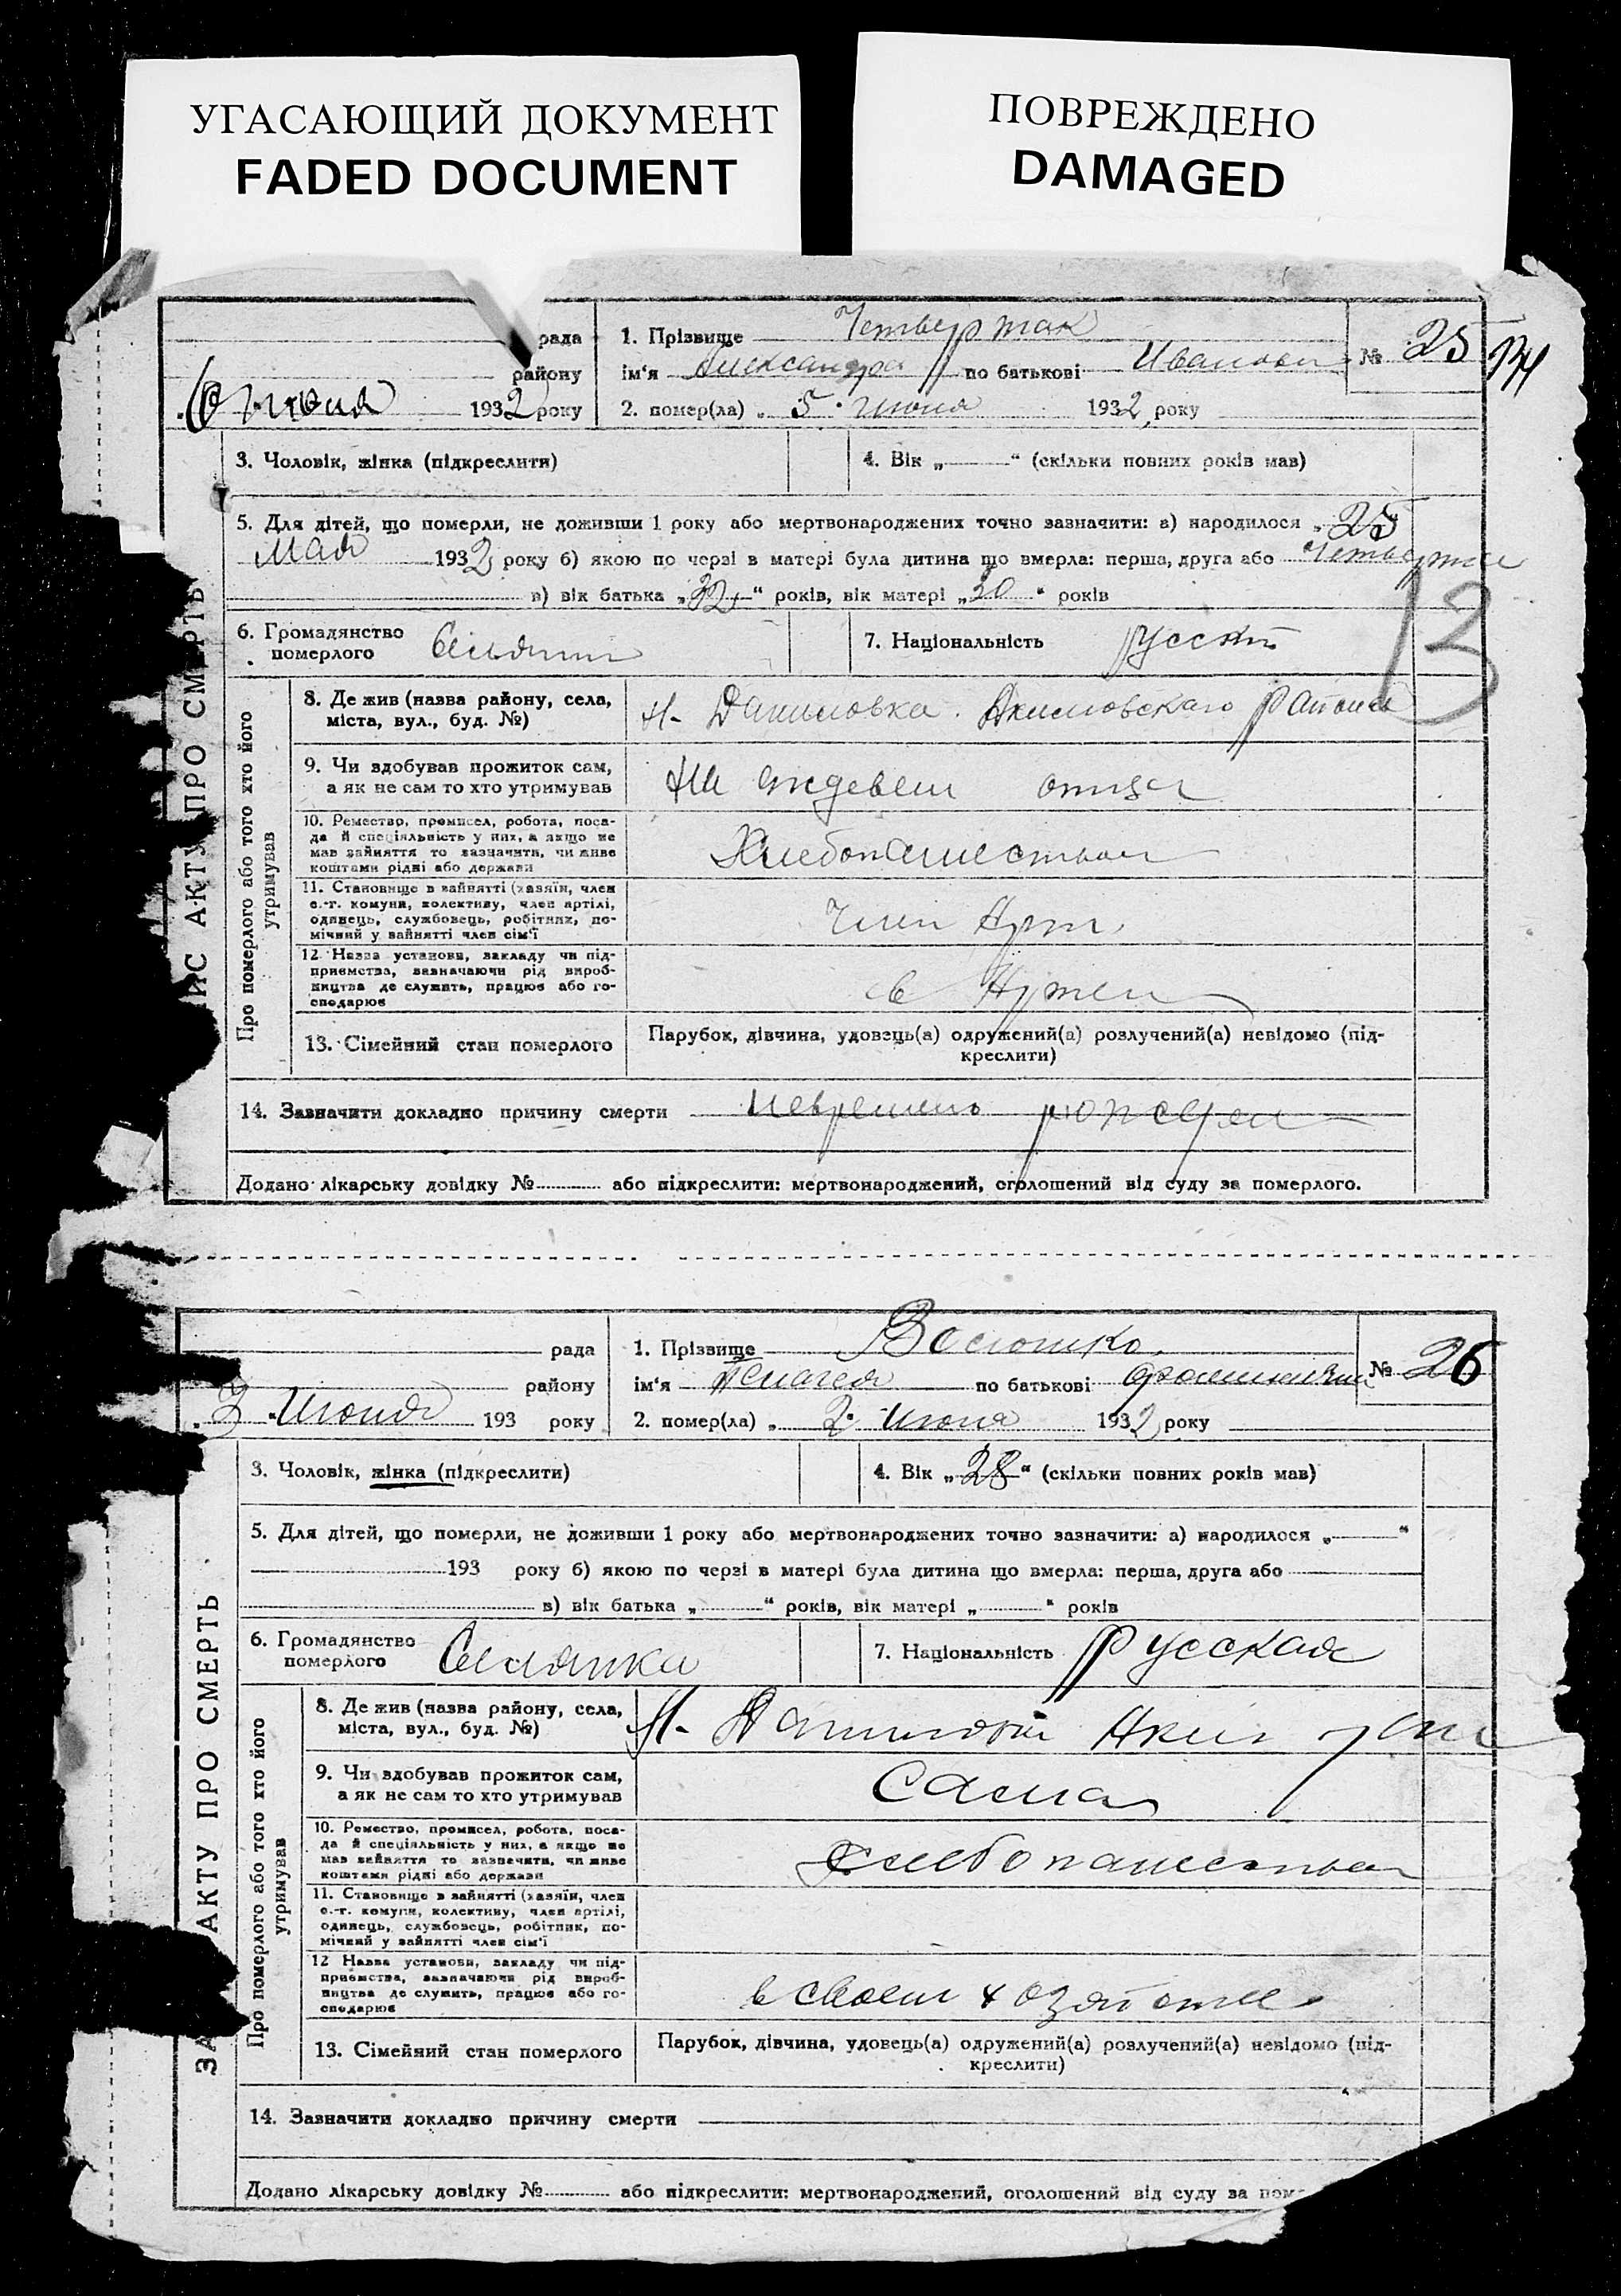 УГАСАЮЩИЙ ДОКУМЕНТ
FADED DOCUMENT
ПОВРЕЖДЕНО
DAMAGED
рада
району
6 июня 1932 року
1. Прізвище Четвертак
ім'я Александра по батькові
№ 25
2. помер(ла) „ 5 " июня 1932 року
3. Чоловік, жінка (підкреслити)
4. Вік „ “ (скільки повних років мав)
5. Для дітей, що померли, не доживши 1 року або мертвонароджених точно зазначити: а) народилося „ 25
Мая 1932 року б) якою по черзі в матері була дитина що вмерла: перша, друга або
в) вік батька „32“ років, вік матері „30“ років
6. Громадянство
померлого
7. Національність
8. Де жив (назва району, села,
міста, вул., буд. №)
Н- Даниловка. Акимовского района
9. Чи здобував прожиток сам,
а як не сам то хто утримував
На иждевен отца
10. Ремество, промисел, робота, поса-
да й спеціяльність у них, а якщо не
мав зайняття то зазначити, чи живе
коштами рідні або держави
Хлебопашество
11. Становище в зайнятті (хазяїн, член
с.-г. комуни, колективу, член артілі,
одинець, службовець, робітник, по-
мічний у зайнятті член сім'ї
Член Арт.
12. Назва установи, закладу чи під-
приємства, зазначаючи рід вироб-
ництва де служить, працює або го-
сподарює
в Артели
13. Сімейний стан померлого
Парубок, дівчина, удовець(а) одружений(а) розлучений(а) невідомо (під-
креслити)
Про померлого або того хто його
утримував
ИС АКТУ ПРО СМЕРТЬ
13
14. Зазначити докладно причину смерти
Додано лікарську довідку № або підкреслити: мертвонароджений, оголошений від суду за померлого.
рада
району
3 Июня 193 року
1. Прізвище Волошко.
ім'я Пелагея по батькові
№ 26
2. помер(ла) „ 2 " июня 1932 року
3. Чоловік, жінка (підкреслити)
4. Вік „28“ (скільки повних років мав)
5. Для дітей, що померли, не доживши 1 року або мертвонароджених точно зазначити: а) народилося „ “
193 року б) якою по черзі в матері була дитина що вмерла: перша, друга або
в) вік батька „ “ років, вік матері „ “ років
6. Громадянство
померлого
Селянка
7. Національність Русская
8. Де жив (назва району, села,
міста, вул., буд. №)
9. Чи здобував прожиток сам,
а як не сам то хто утримував
Сама
10. Ремество, промисел, робота, поса-
да й спеціяльність у них, а якщо не
мав зайняття то зазначити, чи живе
коштами рідні або держави
хлебопашество
11. Становище в зайнятті (хазяїн, член
с.-г. комуни, колективу, член артілі,
одинець, службовець, робітник, по-
мічний у зайнятті член сім'ї
12 Назва установи, закладу чи під-
приємства, зазначаючи рід вироб-
ництва де служить, працює або го-
сподарює
в своем хозяйстве
13. Сімейний стан померлого
Парубок, дівчина, удовець(а) одружений(а) розлучений(а) невідомо (під-
креслити)
Про померлого або того хто його
утримував
ЗА АКТУ ПРО СМЕРТЬ
14. Зазначити докладно причину смерти
Додано лікарську довідку № або підкреслити: мертвонароджений, оголошений від суду за пом